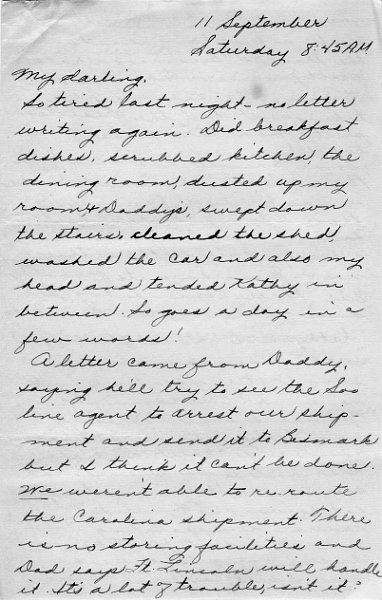 11 September
Saturday 8:45 A.M.
My darling,
So tired last night - no letter
writing again. Did breakfast
dishes, scrubbed kitchen, the
dining room, dusted up my
room & Daddy's, swept down
the stairs, cleaned the shed,
washed the car and also my
head and tended Kathy in
between. So goes a day in a
few words!
A letter came from Daddy,
saying he'll try to see the Soo
line agent to arrest our ship-
ment and send it to Bismark
but I think it can't be done.
We weren't able to re-route
the Carolina shipment. There
is no storing facilities and
Dad says Ft Lincoln will handle
it. It's a lot of trouble, isn't it?